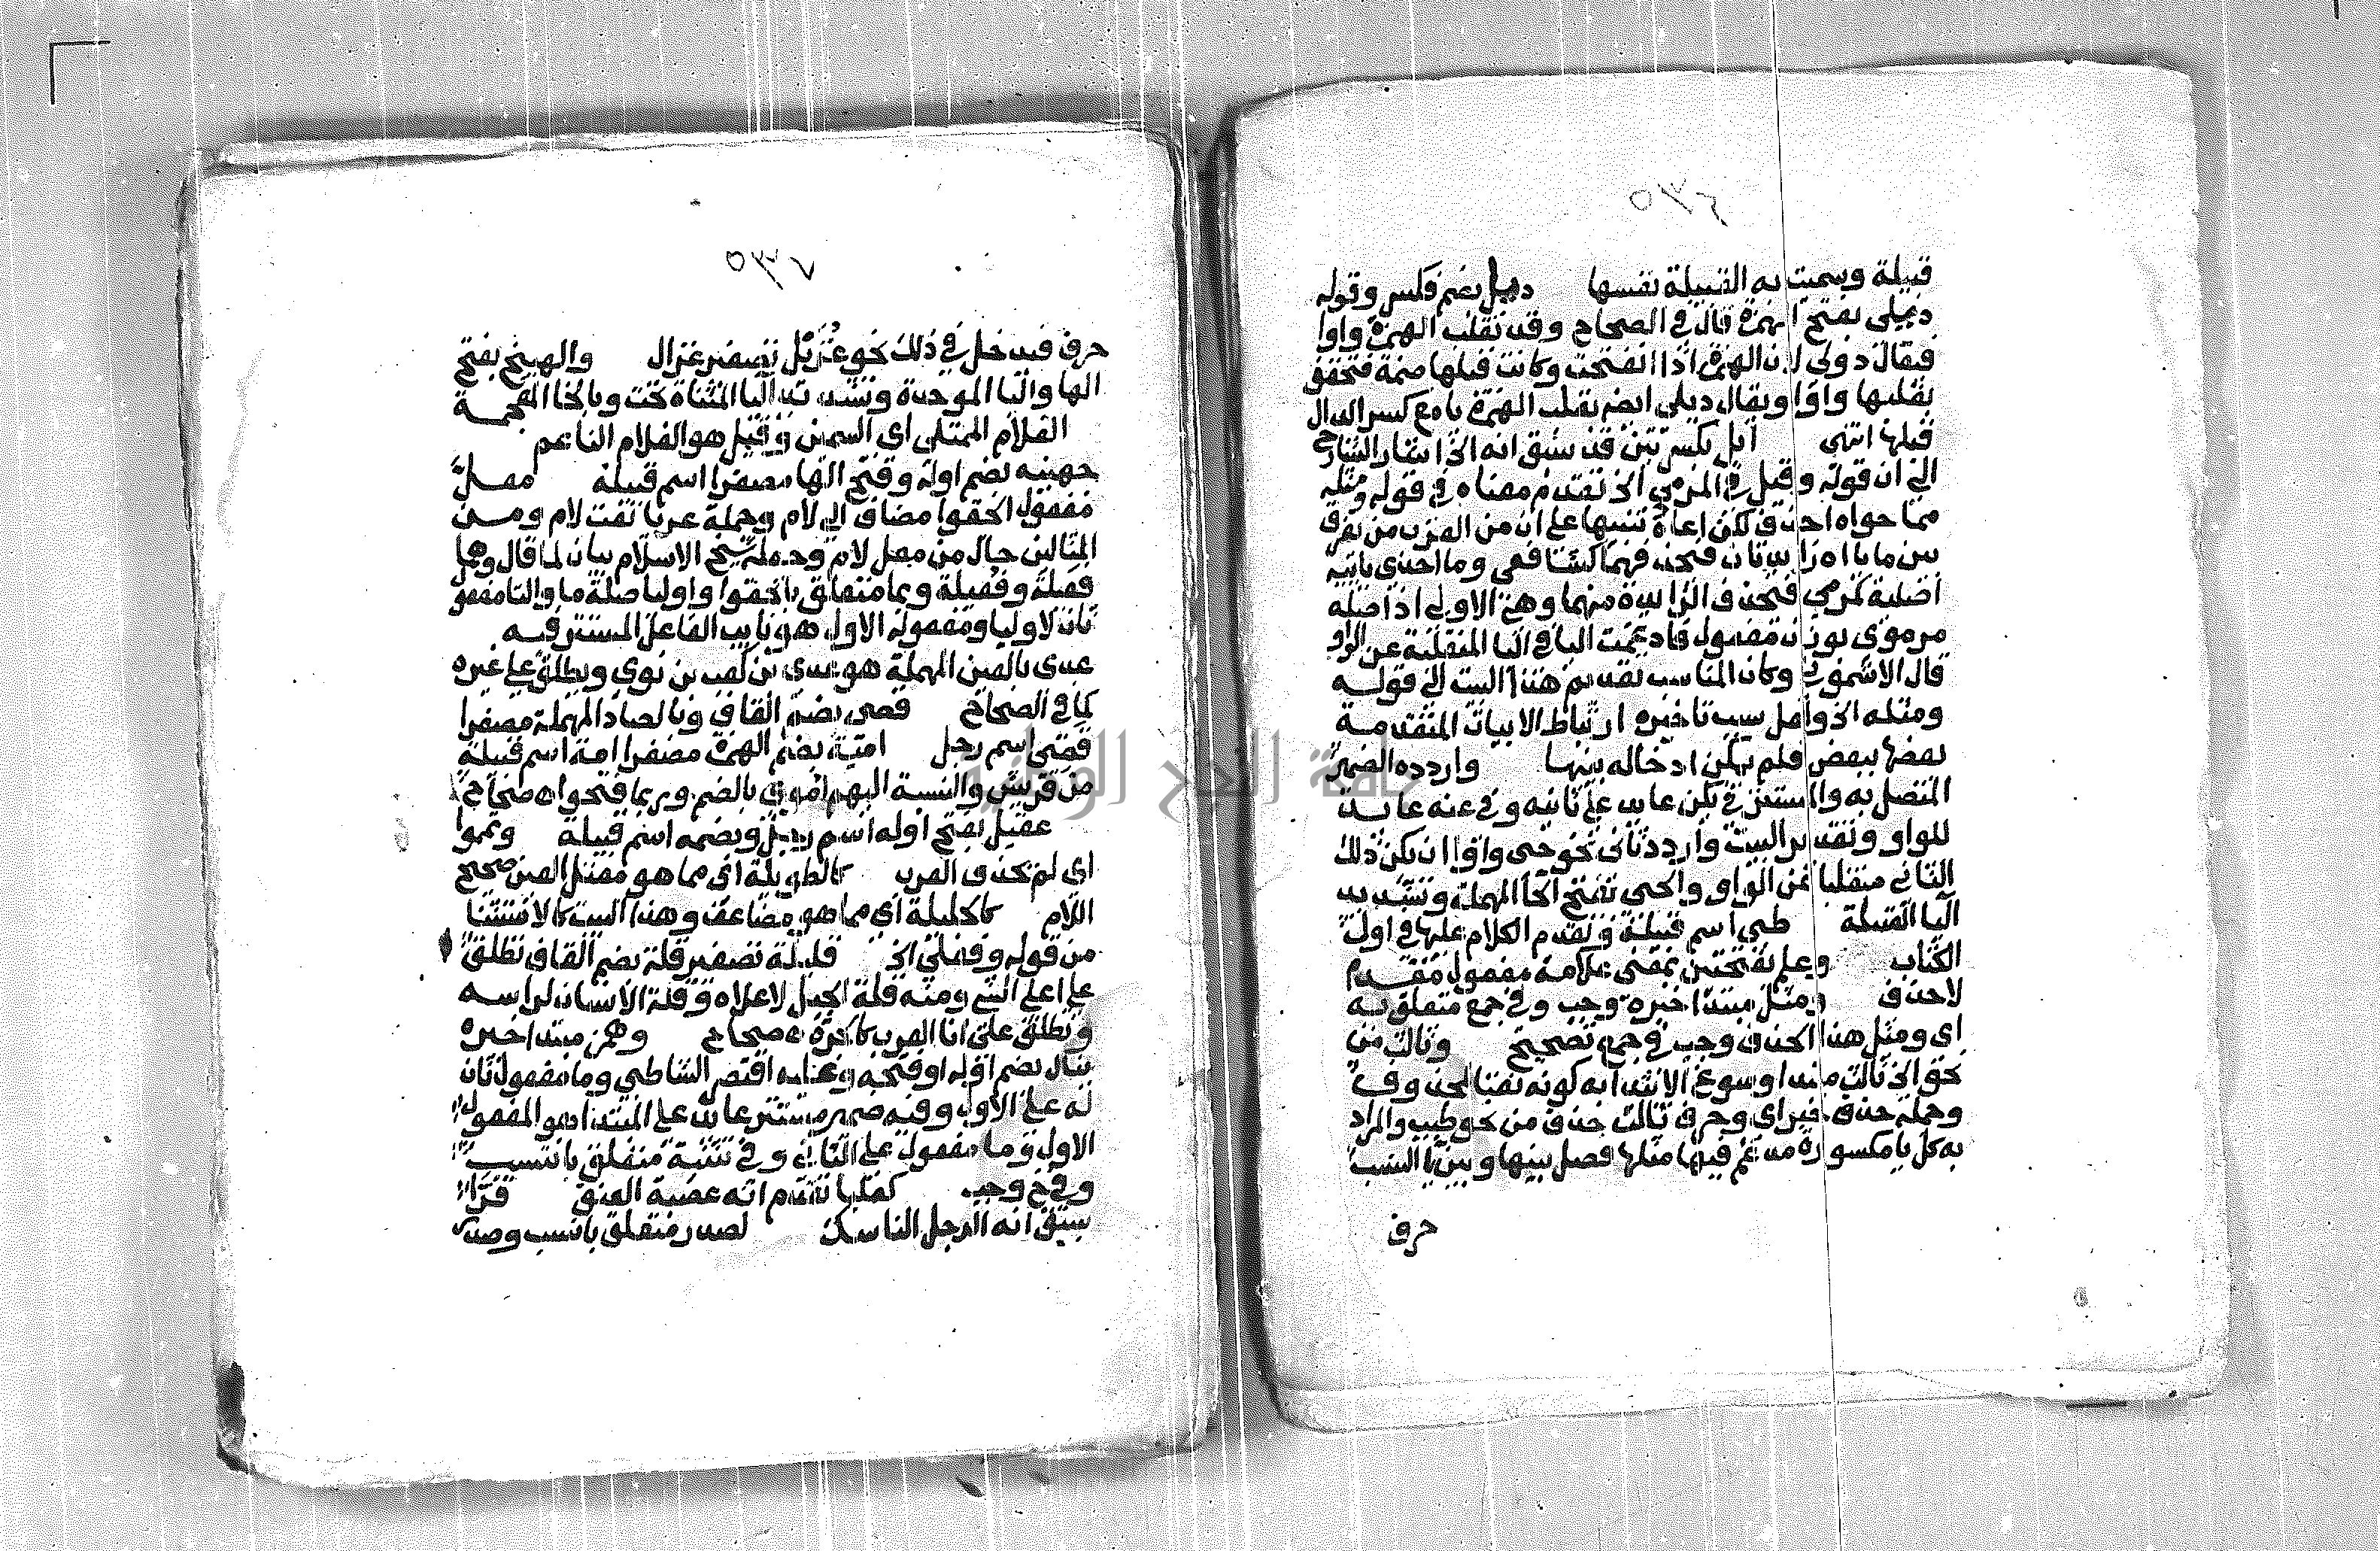 ٥٣٦
قبيلة وسميت به القبيلة نفسها دئل بضم فكسر وقوله
دئلي بفتح الهمزة قال في الصحاح وقد تقلب الهمزة واوا
فيقال دولي لان الهمزة اذا انفتحت وكانت قبلها ضمة فتخفف
بقلبها واوا ويقال ديلي ايضا بقلب الهمزة يا مع كسر الدال
قبلها انتهى ابل بكسرتين قد سبق انه الخ اشار الشارح
الى ان قوله وقيل في المرمي الخ تقدم معناه في قوله ومثله
مما حواه احذف لكن اعاده تنبيها على ان من العرب من يفرق
بين ما ياءاه زايدتان فتحذفهما كشافعي وما احدى يائيه
اصلية كمرمي فتحذف الزايدة منهما وهي الاولى اذ اصله
مرموي بوزن مفعول فادغمت اليا في اليا المنقلبة عن الواو
قال الاشموني وكان المناسب تقديم هذا البيت الى قوله
ومثله الخ ولعل سبب تاخيره ارتباط الابيات المتقدمة
بعضها ببعض فلم يمكن ادخاله بينها واردده الضمير
المتصل به والمستتر في يكن عايد على ثانيه وفي عنه عايد
للواو وتقدير البيت واردد ثاني نحو حي واوا ان يكن ذلك
الثاني منقلبا عن الواو والحي بفتح الحا المهملة وتشديد
اليا القبيلة طي اسم قبيلة وتقدم الكلام عليها في اول
الكتاب وعلم بفتحتين بمعنى علامة مفعول مقدم
لاحذف ومثل مبتدا خبره وجب وفي جمع متعلق به
اي ومثل هذا الحذف وجب في جمع تصحيح وثالث من
نحو الخ ثالث مبتدا وسوغ الابتدا به كونه نعتا لمحذوف
وجملة حذف خبر اي وحرف ثالث حذف من نحو طيب والمراد
به كل يا مكسورة مدغم فيها مثلها فصل بينها وبين يا النسب
حرف
٥٣٧
حرف فيدخل في ذلك نحو غزيل تصغير غزال والهبيخ بفتح
الها واليا الموحدة وتشديد اليا المثناة تحت وبالخا المعجمة
الغلام الممتلي اي السمين وقيل هو الغلام الناعم
جهينة بضم اوله وفتح الها مصغرا اسم قبيلة معل
مفعول الحقوا مضاف الى لام وجملة عريا نعت لام ومن
المثالين حال من معل لام وجملة شيخ الاسلام بيان لما قال وهما
فعيلة وفعيلة وبما متعلق بالحقوا واوليا صلة ما والتا مفعول
ثان لاوليا ومفعوله الاول هو نايب الفاعل المستتر فيه
عدي بالعين المهملة هو عدي بن كعب بن لوي ويطلق على غيره
كما في الصحاح قصي بضم القاف وبالصاد المهملة مصغرا
قصي اسم رجل امية بضم الهمزة مصغرا امة اسم قبيلة
من قريش والنسبة اليهم اموي بالضم وربما فتحوا ه صحاح
عقيل بفتح اوله اسم رجل وبضمه اسم قبيلة وتمموا
اي لم تحذف العرب كالطويلة اي مما هو معتل العين صحيح
اللام كالجليلة اي مما هو مضاعف وهذا البيت كالاستثنا
من قوله وفعلي الخ قليلة تصغير قلة بضم القاف تطلق
على اعلى الشي ومنه قلة الجبل لاعلاه وقلة الانسان لراسه
وتطلق على انا العرب كالجرة ه صحاح وهمز مبتدا خبره
ينال بضم اوله او فتحه وعليه اقتصر الشاطبي وما مفعول ثان
له على الاول وفيه ضمير مستتر عايد على المبتدا هو المفعول
الاول وما مفعول على الثاني وفي تثنية متعلق بانتسب
وفي خ وجب كعلبا تقدم انه عصبة العنق قرا
سبق انه الرجل الناسك لصدر متعلق بانسب وصدر
جامعة النجاح الوطنية